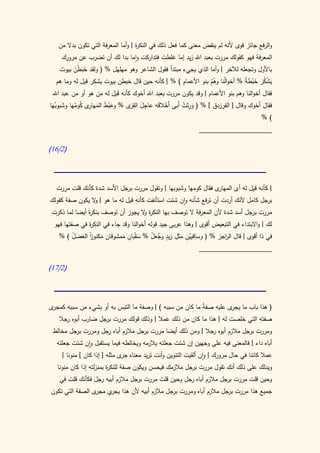 والرفع جائز قوى لأنه لم ينقض معنى كما فعل ذلك في النكرة | وأما المعرفة التي تكون بدلا من
المعرفة فهو كقولك مررت بعبد الله زيد إما غلطت فتداركت وإما بدا لك أن تضرب عن مرورك
بالأول وتجعله للآخر | وأما الذي يجيء مبتدأ فقول الشاعر وهو مهلهل % ( ولقد خَبَطْنَ بيوتَ
يَشْكُرَ خَبْطَةً % أَخوالُنا وهُمُ بنو الأعمام ) % | كأنه حين قال خبطن بيوت يشكر قيل له وما هم
فقال أخوالنا وهم بنو الأعمام | وقد يكون مررت بعبد الله أخوك كأنه قيل له من هو أو من عبد الله
فقال أخوك وقال | الفرزدق | % ( وَرِثْتُ أبى أَخْلاقَه عاجِلَ القِرَى % وعَبْطَ المَهارِى كُومُها وشَبوبُها
) %
(16/2)
| كأنه قيل له أى المهارى فقال كومها وشبوبها | وتقول مررت برجل الأسد شدة كأنك قلت مررت
برجل كامل لأنك أردت أن ترفع شأنه وإن شئت استأنفت كأنه قيل له ما هو | ولا يكون صفة كقولك
مررت برجل أسد شدة لأن المعرفة لا توصف بها النكرة ولا يجوز أن توصف بنكرة أيضا لما ذكرت
لك | والابتداء في التبعيض أقوى | وهذا عربى جيد قوله أخوالنا وقد جاء في النكرة في صفتها فهو
في ذا أقوى | قال الراجز % ( وساقِيَيْنِ مثلِ زيدٍ وجُعَلْ % سَقْبانِ مَمشوقانِ مَكنوزَا العَضَلْ ) %
(17/2)
( هذا باب ما يجرى عليه صفةُ ما كان من سببه ) | وصفة ما التبس به أو بشيء من سببه كمجرى
صفته التي خلصت له | هذا ما كان من ذلك عملا | وذلك قولك مررت برجل ضارب أبوه رجلا
ومررت برجل ملازم أبوه رجلا | ومن ذلك أيضا مررت برجل ملازم أباه رجل ومررت برجل مخالط
أباه داء | فالمعنى فيه على وجهين إن شئت جعلته يلازمه ويخالطه فيما يستقبل وإن شئت جعلته
عملا كائنا في حال مرورك | وإن ألقيت التنوين وأنت تريد معناه جرى مثله | إذا كان | منونا |
ويدلك على ذلك أنك تقول مررت برجل ملازمك فيحسن ويكون صفة للنكرة بمنزلته إذا كان منونا
وحين قلت مررت برجل ملازم أباه رجل وحين قلت مررت برجل ملازم أبيه رجل فكأنك قلت في
جميع هذا مررت برجل ملازم أباه ومررت برجل ملازم أبيه لأن هذا يجري مجرى الصفة التي تكون